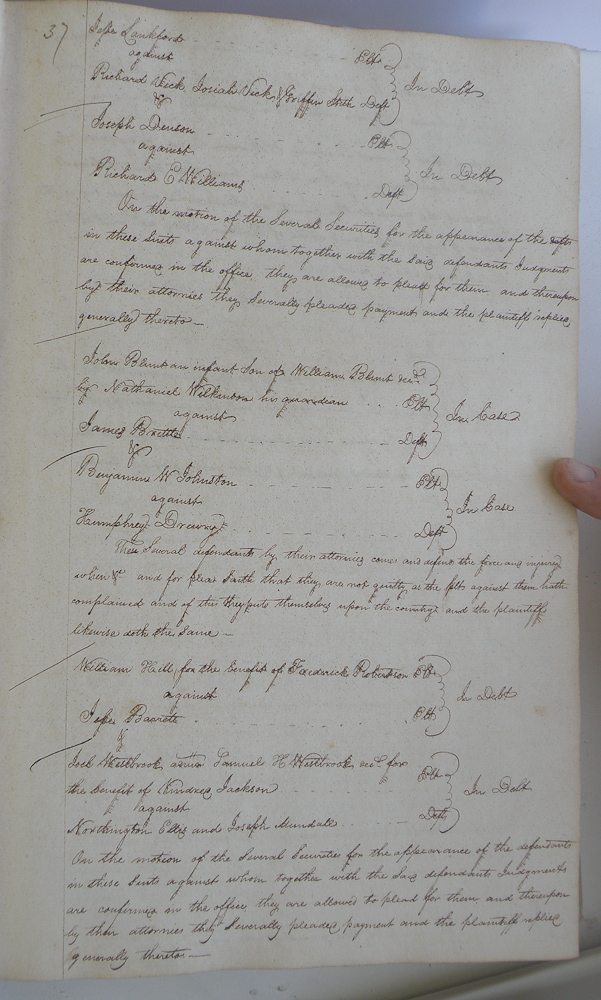 37
Jesse Lankford Plt
against
Richard Vick, Josiah Vick, & Griffin Stith Deft
In Debt
&
Joseph Denson Plt
against
Richard E Williams Deft
In Debt
On the motion of the Several Securities for the appearance of the
in these Suits against whom together with the said defendants Judgments
are confirmed in the office they are allowed to plead for them and thereupon
by their attornies they Severally pleaded payment and the plaintiff replied
generally thereto —
John Blunt an infant Son of William Blunt decd
by Nathaniel Wilkinson his guardian Plt
against
James Brettle Deft
In Case
&
Benjamin W Johnston Plt
against
Humphrey Drewry Deft
In Case
These Several defendants by their attornies comes and defend the force and injury
when &c and for plea Saith that they are not guilty as the plts against them hath
complained and of this they puts themselves upon the country and the plaintiffs
likewise doth the Same —
William Hill, for the benefit of Frederick Robertson Plt
against
Jesse Barrett Plt
In Debt
&
Joel Westbrook Samuel H Westbrook decd for
the benefit of Kindred Jackson Plt
against
Northington Ellis and Joseph Mundall Deft
In Debt
On the motion of the Several Securities for the appearance of the defendants
in these Suits against whom together with the Said defendants Judgments
are confirmed in the office, they are allowed to plead for them and thereupon
by their attornies they Severally pleaded payment and the plaintiff replied
generally thereto —